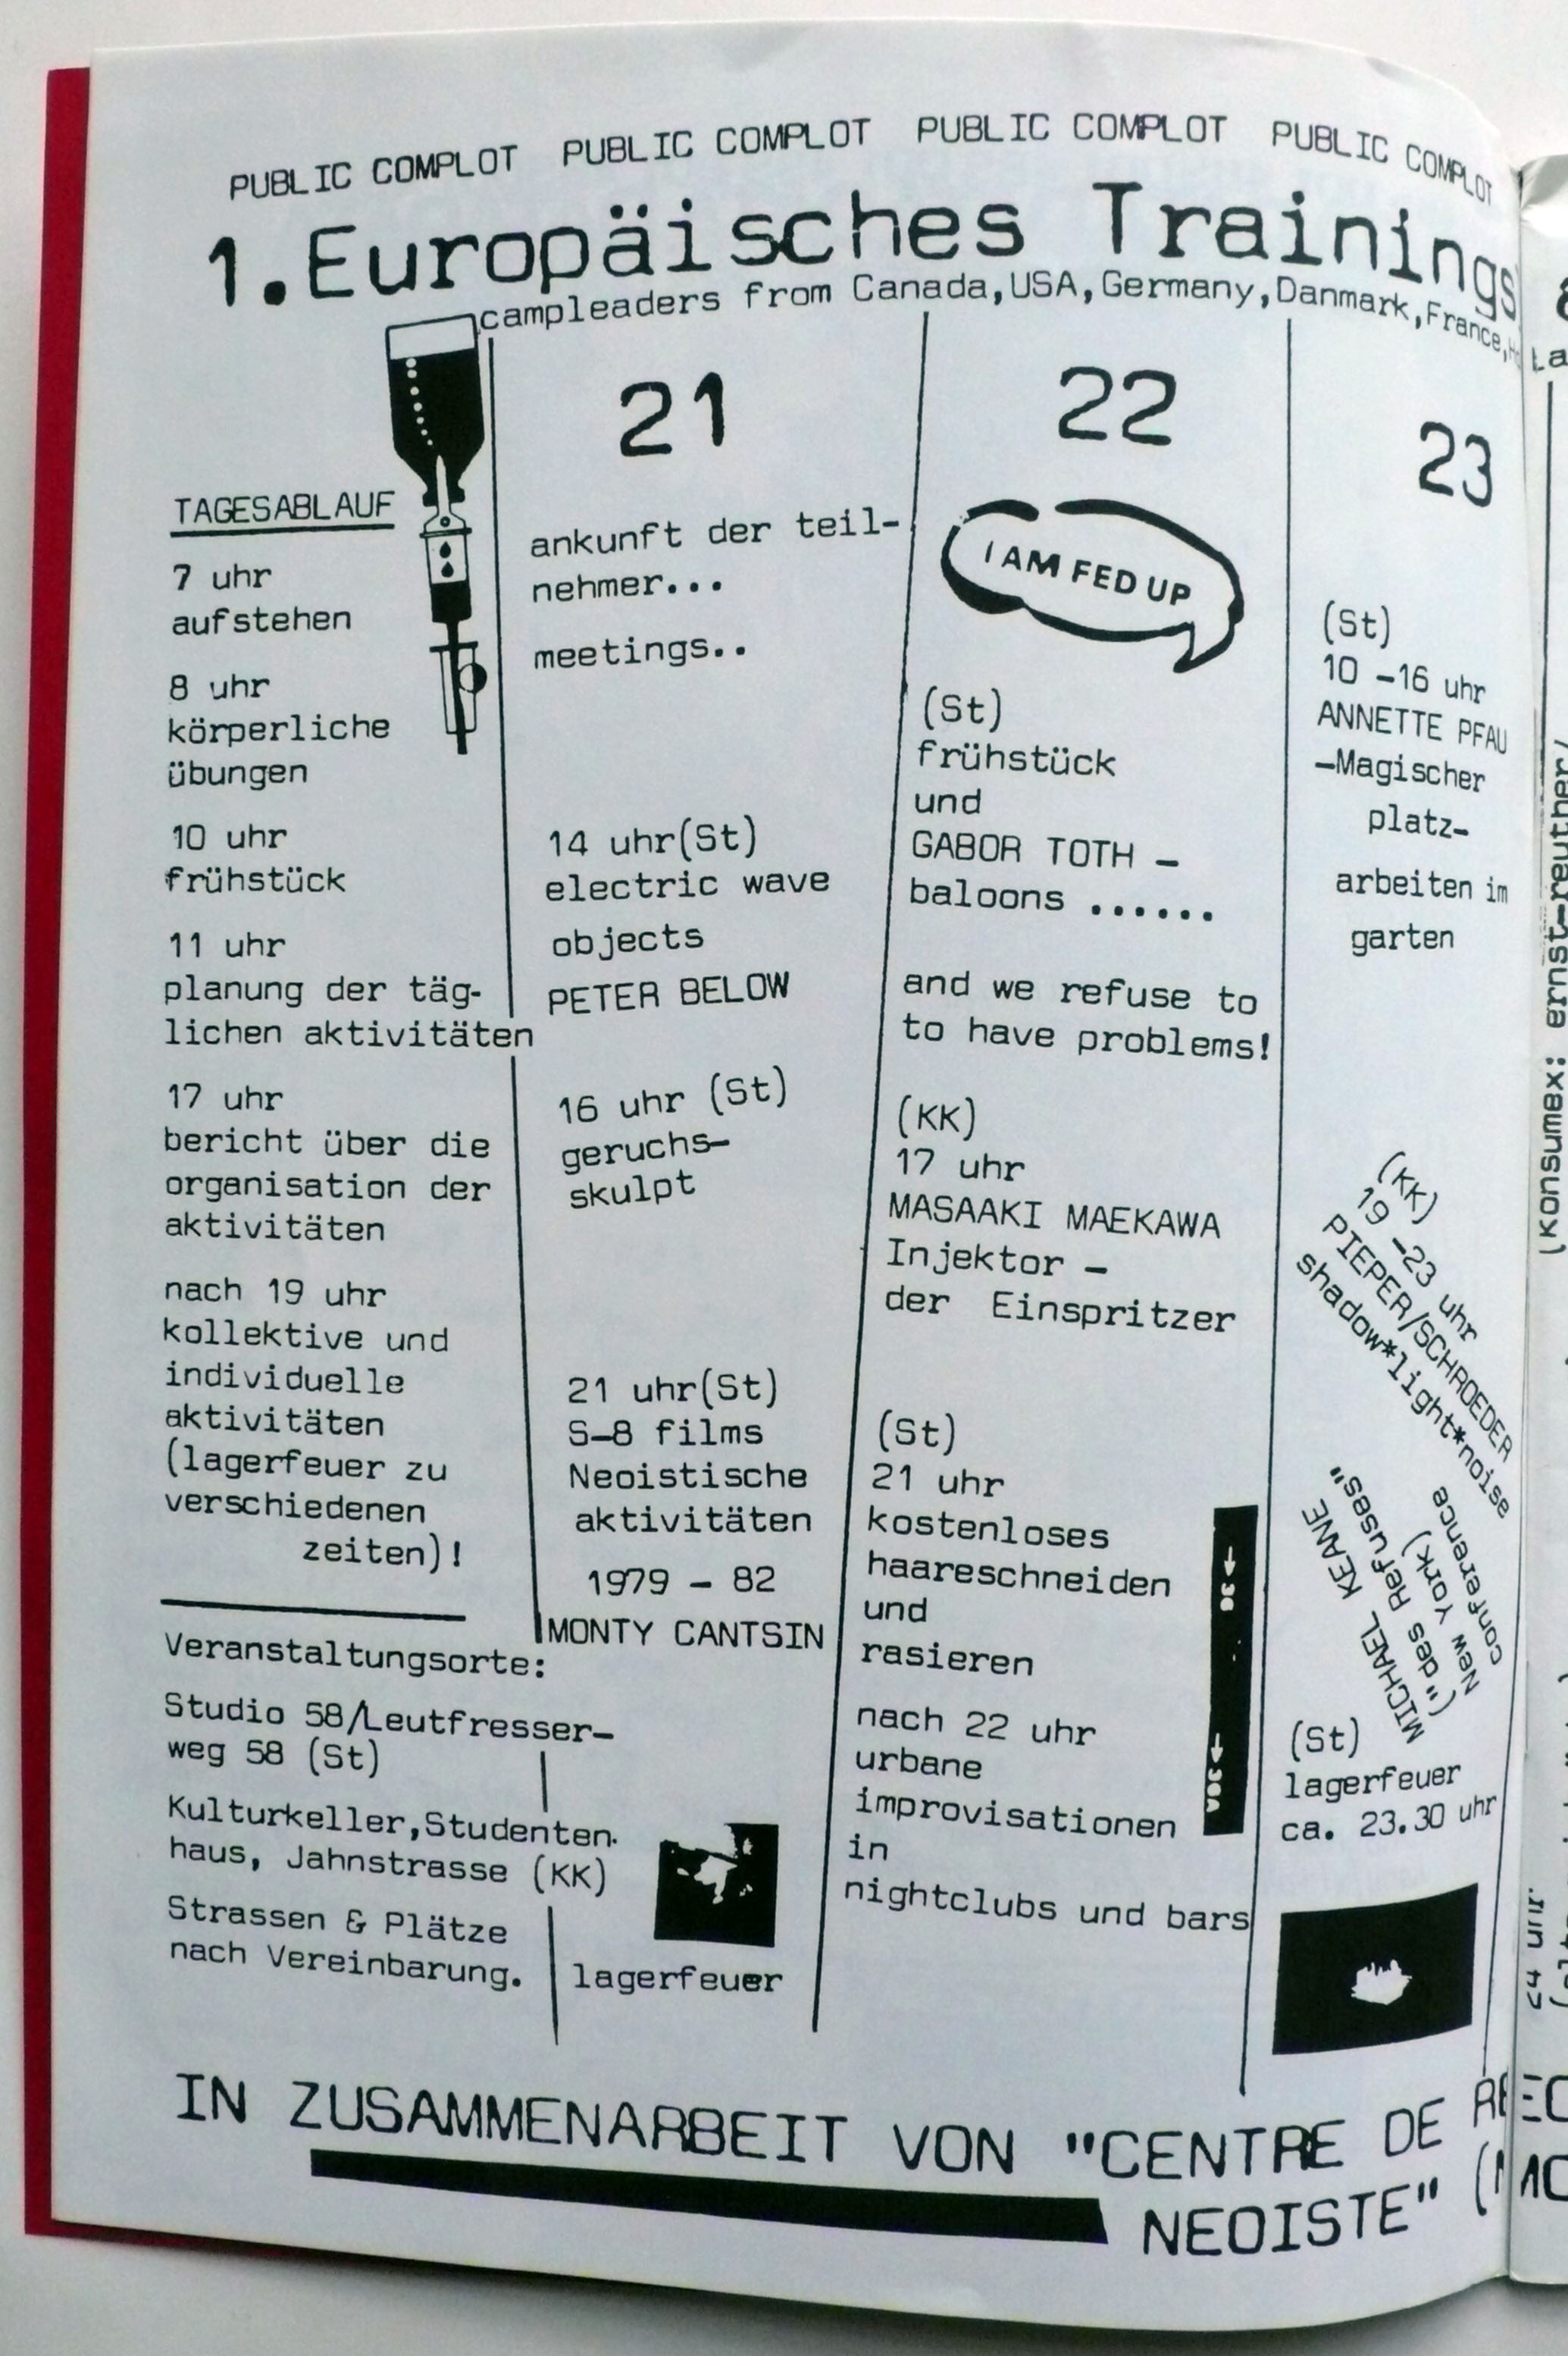 PUBLIC COMPLOT PUBLIC COMPLOT PUBLIC COMPLOT PUBLIC COMPLOT
1.Europäisches Trainings
campleaders from Canada,USA,Germany,Danmark,France,
TAGESABLAUF
7 uhr
aufstehen
8 uhr
körperliche
übungen
10 uhr
frühstück
11 uhr
planung der täg-
lichen aktivitäten
17 uhr
bericht über die
organisation der
aktivitäten
nach 19 uhr
kollektive und
individuelle
aktivitäten
(lagerfeuer zu
verschiedenen
zeiten)!
Veranstaltungsorte:
Studio 58/Leutfresser-
weg 58 (St)
Kulturkeller,Studenten-
haus, Jahnstrasse (KK)
Strassen & Plätze
nach Vereinbarung.
21
ankunft der teil-
nehmer...
meetings..
14 uhr(St)
electric wave
objects
PETER BELOW
16 uhr (St)
geruchs-
skulpt
21 uhr(St)
S-8 films
Neoistische
aktivitäten
1979 - 82
MONTY CANTSIN
lagerfeuer
22
I AM FED UP
(St)
frühstück
und
GABOR TOTH -
baloons ......
and we refuse to
to have problems!
(KK)
17 uhr
MASAAKI MAEKAWA
Injektor -
der Einspritzer
(St)
21 uhr
kostenloses
haareschneiden
und
rasieren
nach 22 uhr
urbane
improvisationen
in
nightclubs und bars
23
(St)
10 -16 uhr
ANNETTE PFAU
-Magischer
platz-
arbeiten im
garten
(KK)
19 -23 uhr
PIEPER/SCHROEDER
shadow*light*noise
MICHAEL KEANE
("des Refuses"
New York)
conference
(St)
lagerfeuer
ca. 23.30 uhr
IN ZUSAMMENARBEIT VON "CENTRE DE
NEOISTE"
(Konsumex: ernst-reuther/
24 uhr